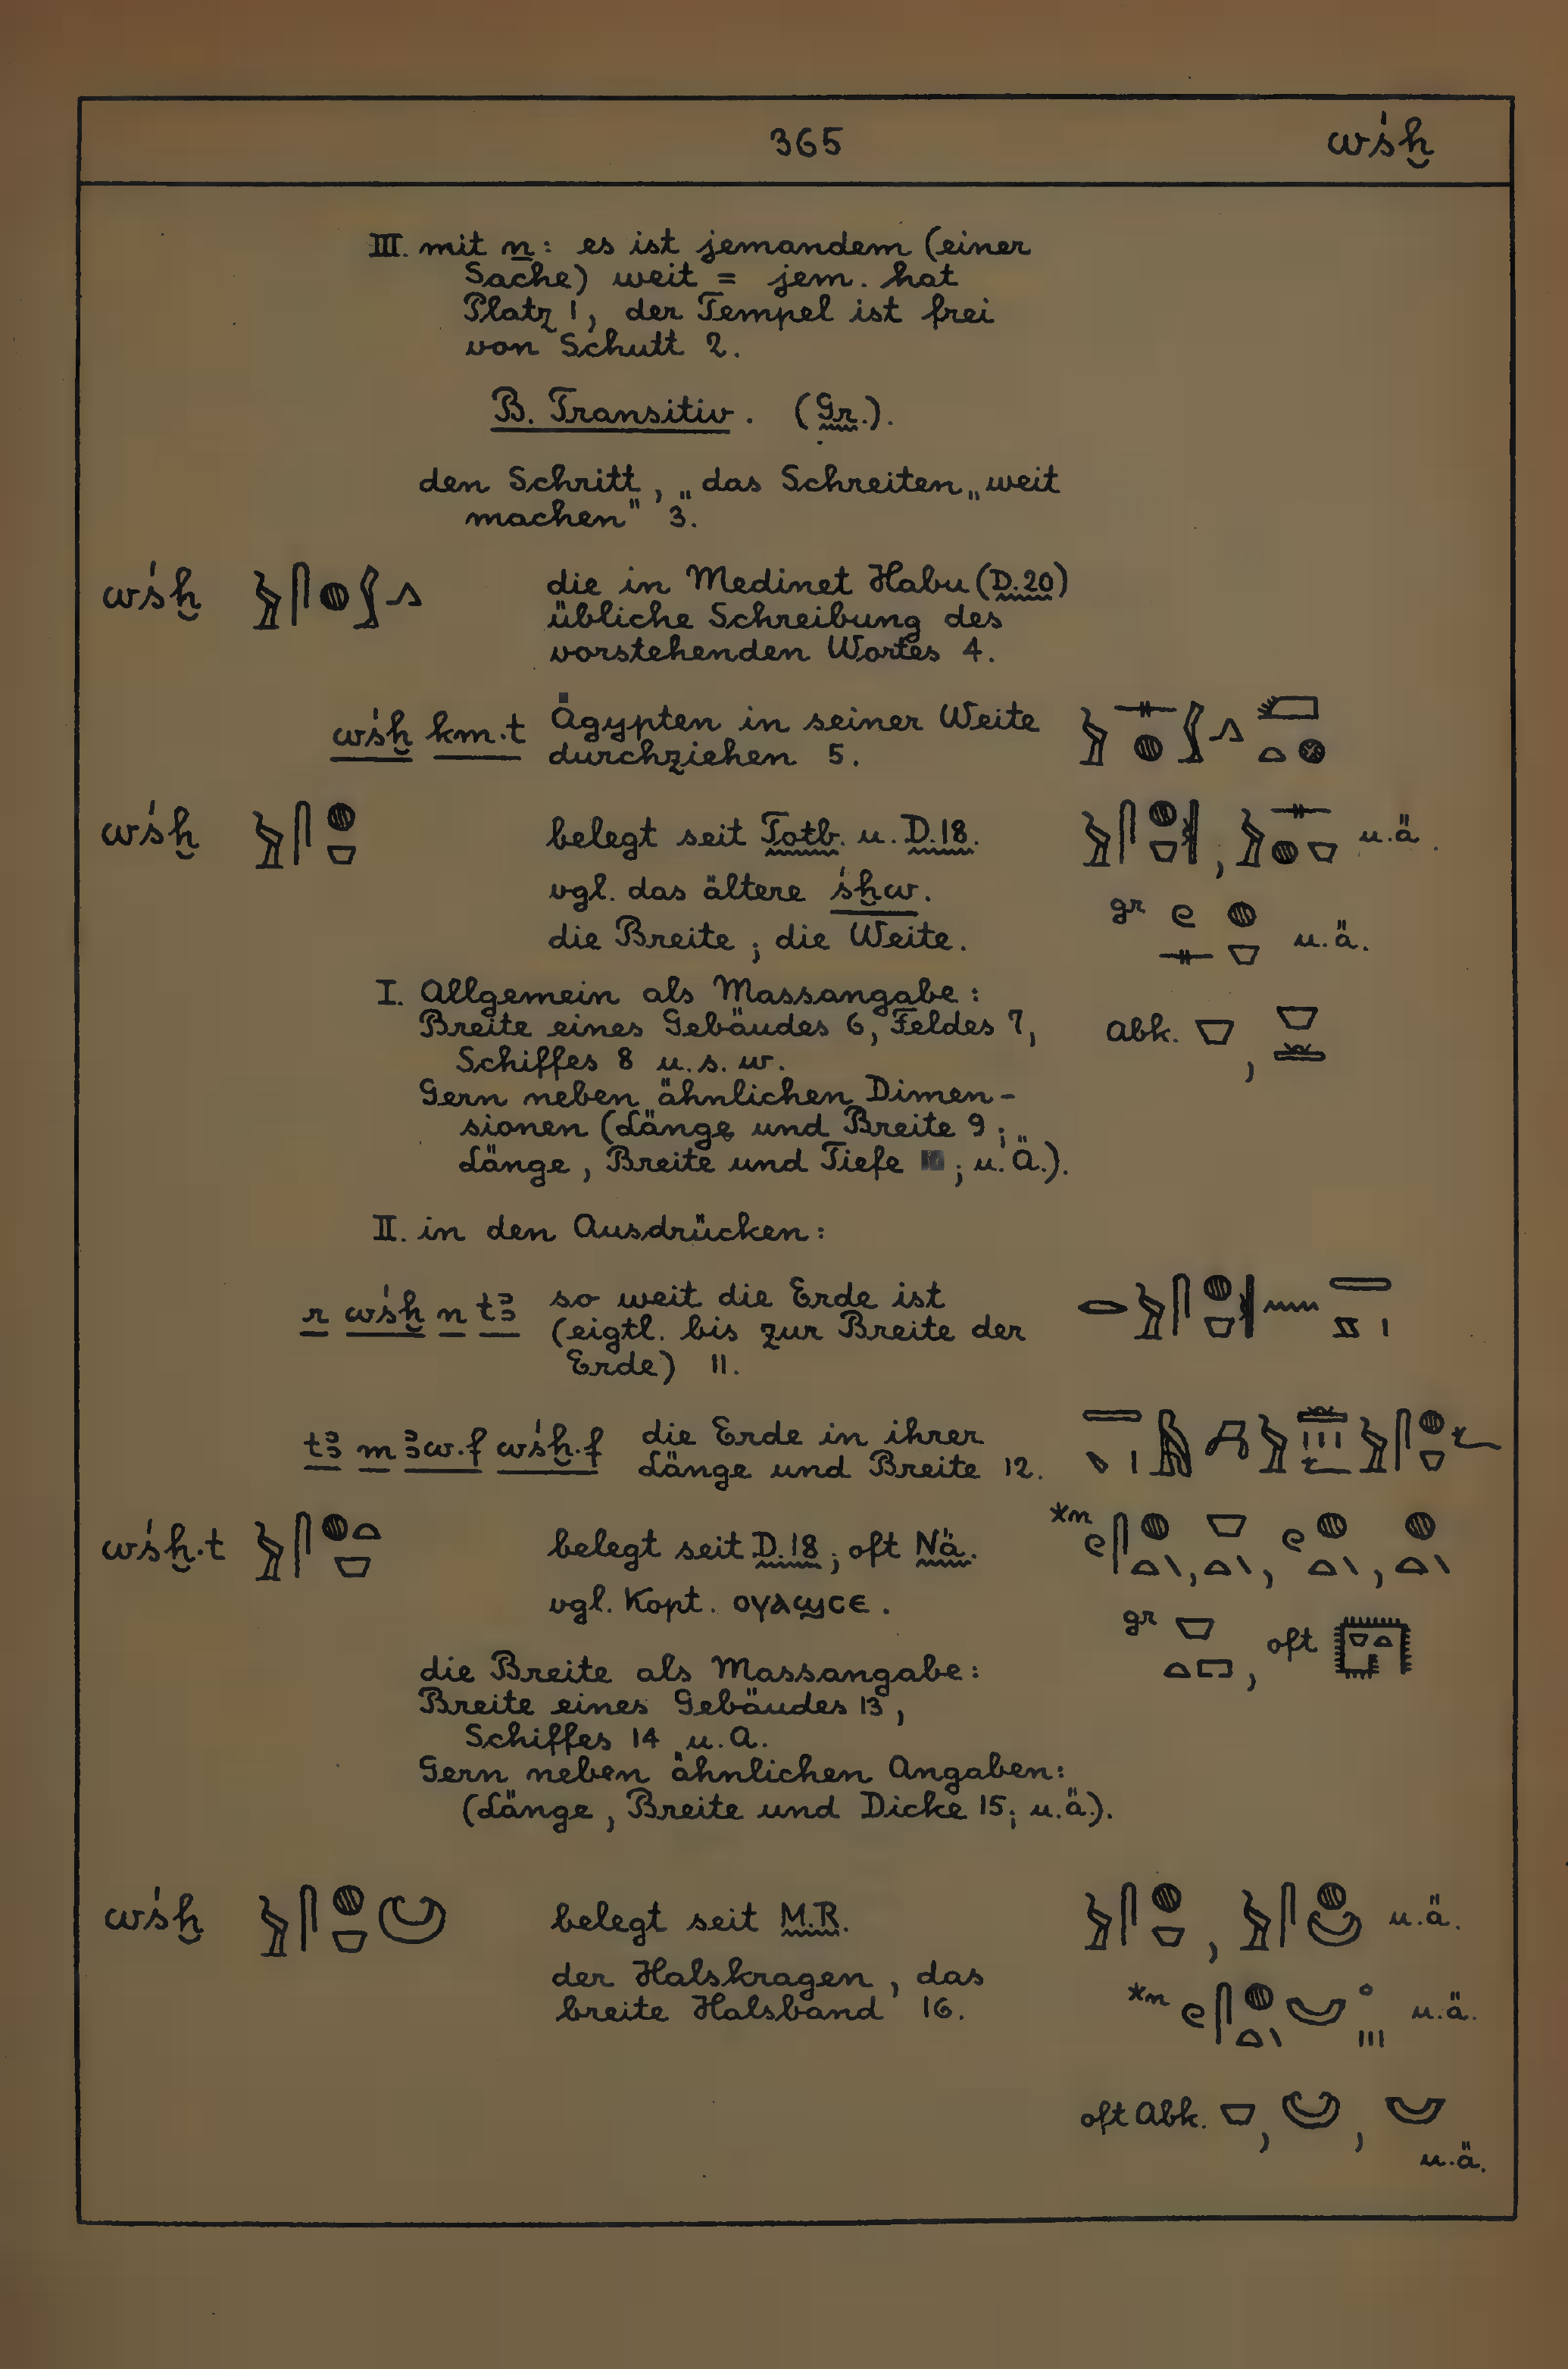 365 wśḫ
III. mit n: es ist jemandem (einer
Sache) weit = jem. hat
Platz 1, der Tempel ist frei
von Schutt 2.
B. Transitiv. (Gr.).
den Schritt, „das Schreiten„ weit
machen" 3.
wśḫ die in Medinet Habu (D.20)
übliche Schreibung des
vorstehenden Wortes 4.
wśḫ km.t Ägypten in seiner Weite
durchziehen 5.
wśḫ belegt seit Totb. u. D.18. , u.ä.
vgl. das ältere śḫw. gr
die Breite; die Weite. u.ä.
I. Allgemein als Massangabe:
Breite eines Gebäudes 6, Feldes 7, Abk. ,
Schiffes 8 u.s.w.
Gern neben ähnlichen Dimen-
sionen (Länge und Breite 9;
Länge, Breite und Tiefe 10; u. Ä.).
II. in den Ausdrücken:
r wśḫ n tꜣ so weit die Erde ist
(eigtl. bis zur Breite der
Erde) 11.
tꜣ m ꜣw.f wśḫ.f die Erde in ihrer
Länge und Breite 12.
wśḫ.t belegt seit D.18; oft Nä. *n , , ,
vgl. Kopt. ⲟⲩⲁϣⲥⲉ. gr , oft
die Breite als Massangabe:
Breite eines Gebäudes 13,
Schiffes 14 u. A.
Gern neben ähnlichen Angaben:
(Länge, Breite und Dicke 15; u.ä.).
wśḫ belegt seit M.R. , u.ä.
der Halskragen, das
breite Halsband 16. *n u.ä.
oft Abk. , ,
u.ä.